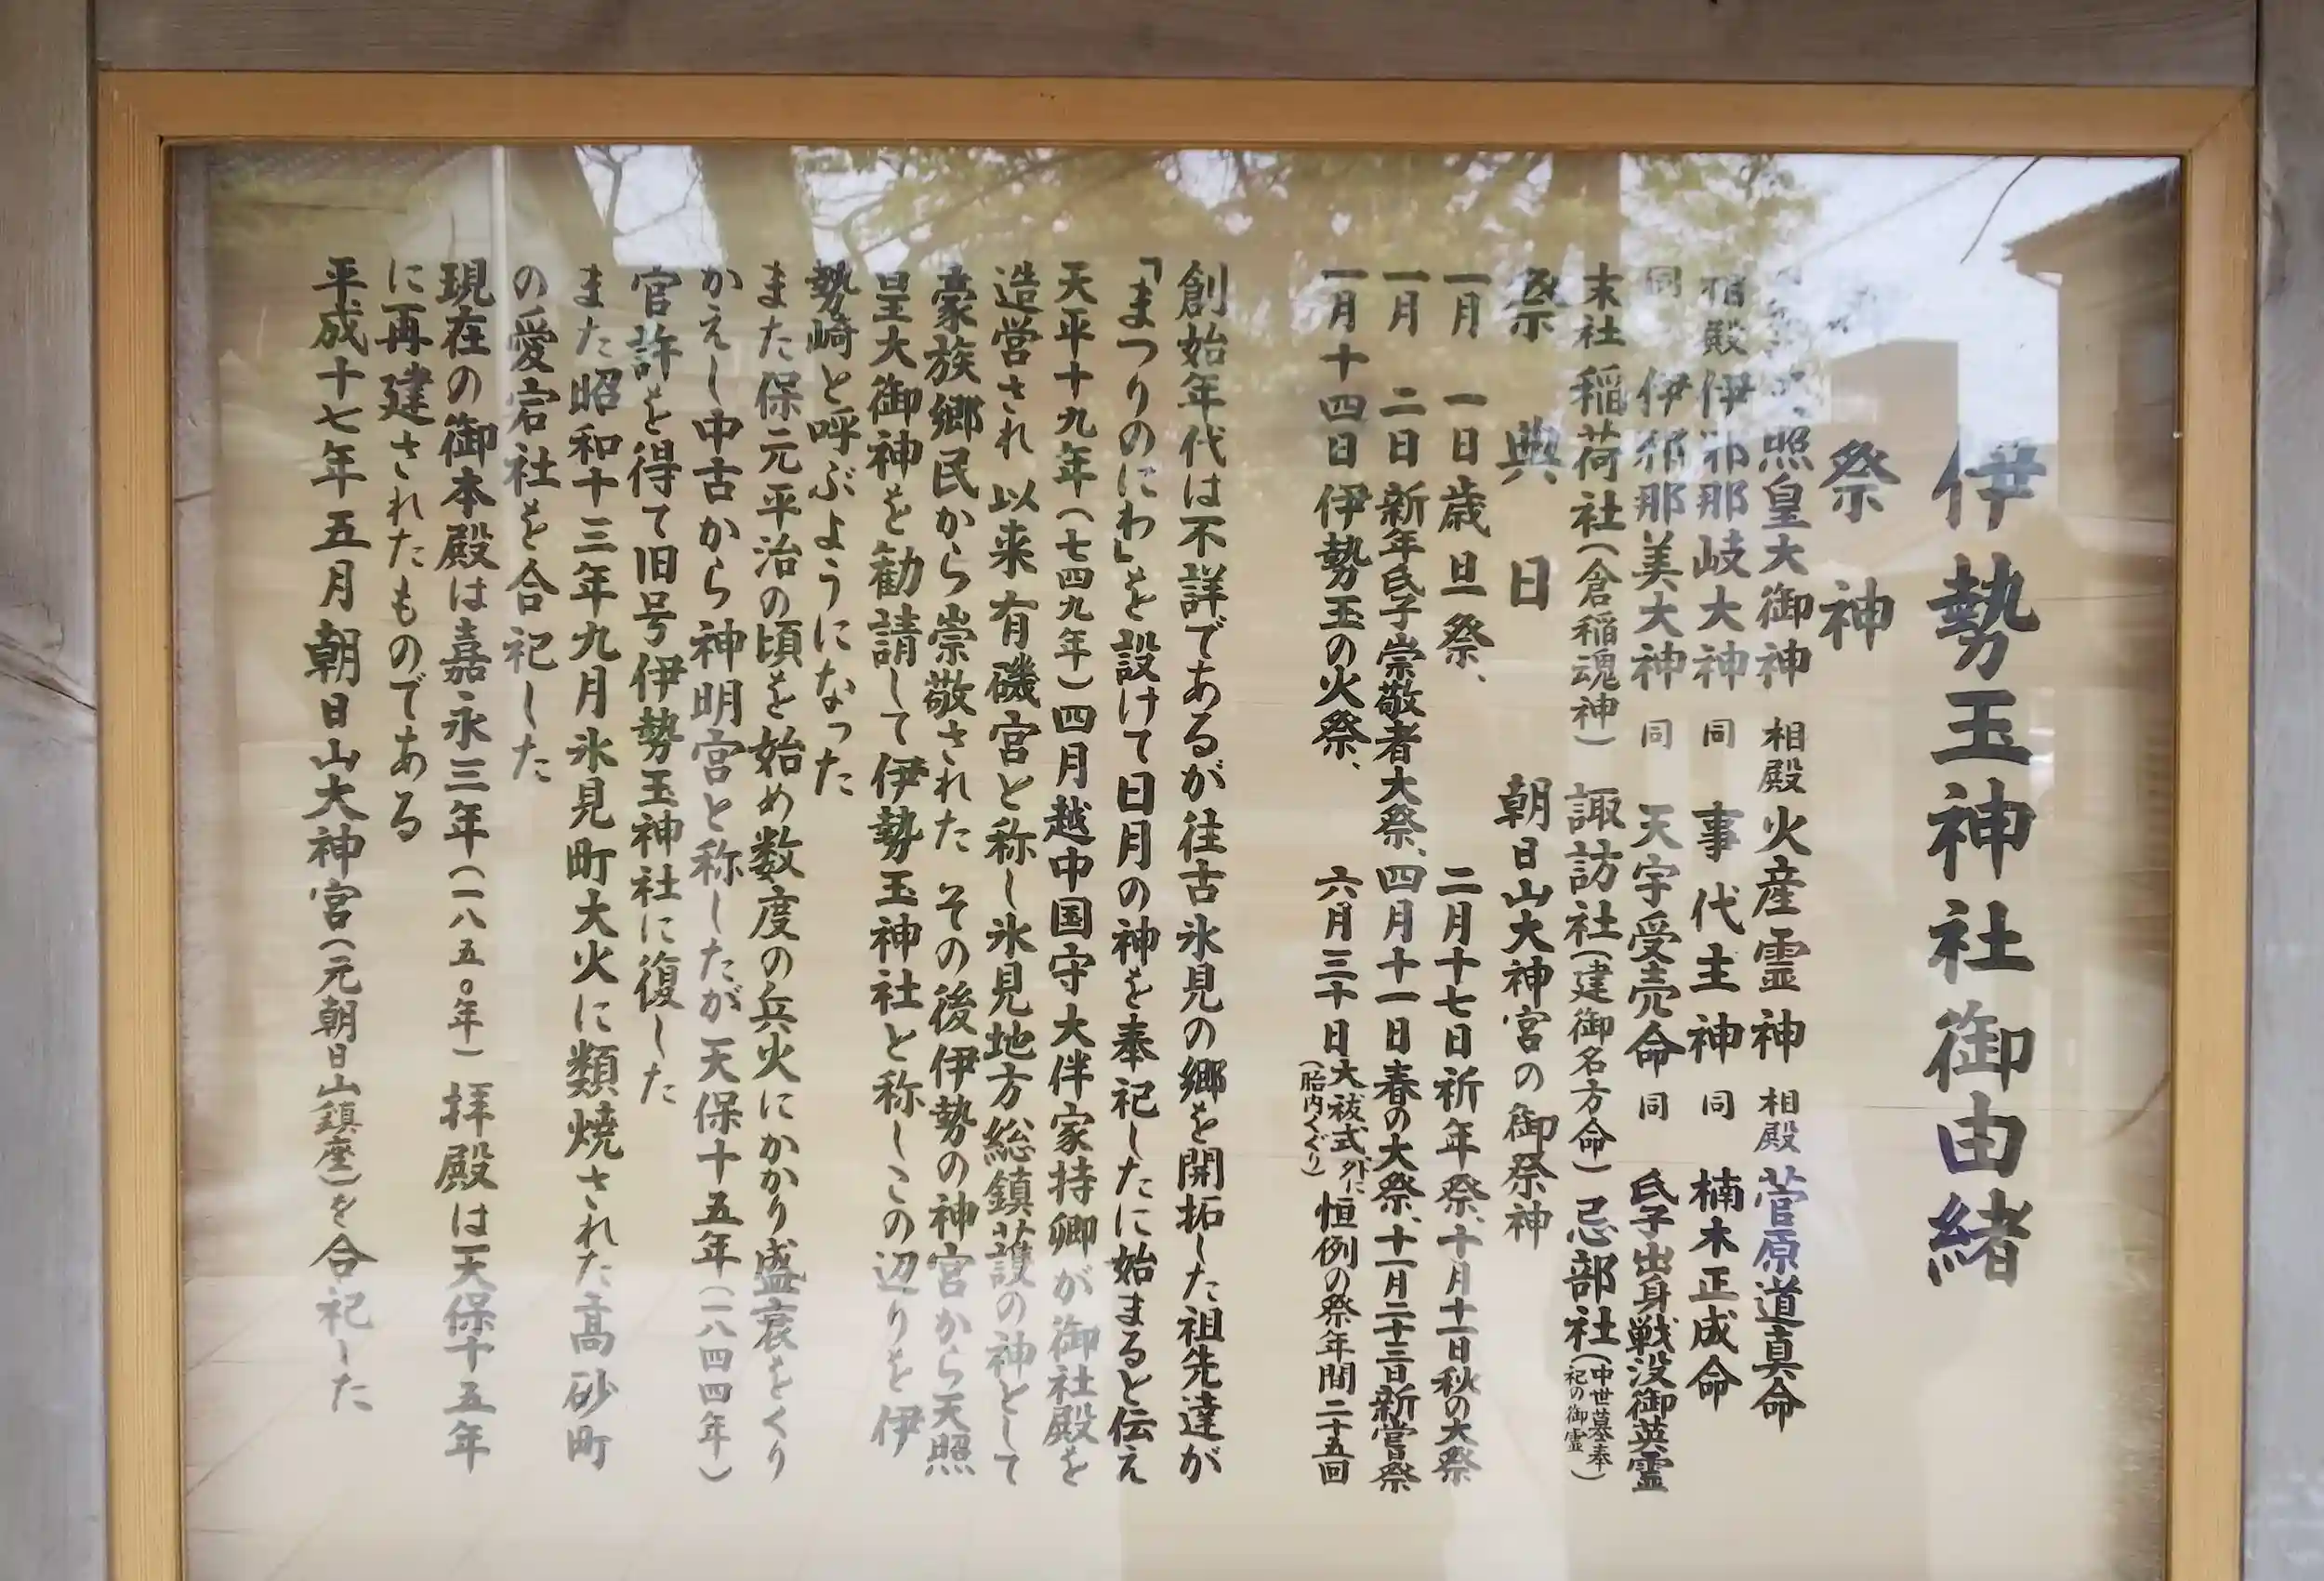 伊勢玉神社御由緒
祭神
照皇大御神 相殿 火産霊神 相殿 菅原道真命
相殿 伊邪那岐大神 同 事代主神 同 楠木正成命
同 伊邪那美大神 同 天宇受売命 同 氏子出身戦没御英霊
末社 稲荷社(倉稲魂神) 諏訪社(建御名方命) 忌部社(中世墓奉祀の御霊)
祭典日 朝日山大神宮の御祭神
一月 一日歳旦祭、 二月十七日祈年祭、十月十一日秋の大祭
一月 二日新年氏子崇敬者大祭、四月十一日春の大祭、十一月二十三日新嘗祭
一月十四日伊勢玉の火祭、 六月三十日大祓式(胎内くぐり)外に恒例の祭年間二十五回
創始年代は不詳であるが往古氷見の郷を開拓した祖先達が
「まつりのにわ」を設けて日月の神を奉祀したに始まると伝え
天平十九年(七四九年)四月越中国守大伴家持卿が御社殿を
造営され 以来有磯宮と称し氷見地方総鎮護の神として
豪族郷民から崇敬された その後伊勢の神宮から天照
皇大御神を勧請して伊勢玉神社と称しこの辺りを伊
勢崎と呼ぶようになった
また保元平治の頃を始め数度の兵火にかかり盛衰をくり
かえし中古から神明宮と称したが天保十五年(一八四四年)
官許を得て旧号伊勢玉神社に復した
また昭和十三年九月氷見町大火に類焼された高砂町
の愛宕社を合祀した
現在の御本殿は嘉永三年(一八五〇年)拝殿は天保十五年
に再建されたものである
平成十七年五月朝日山大神宮(元朝日山鎮座)を合祀した